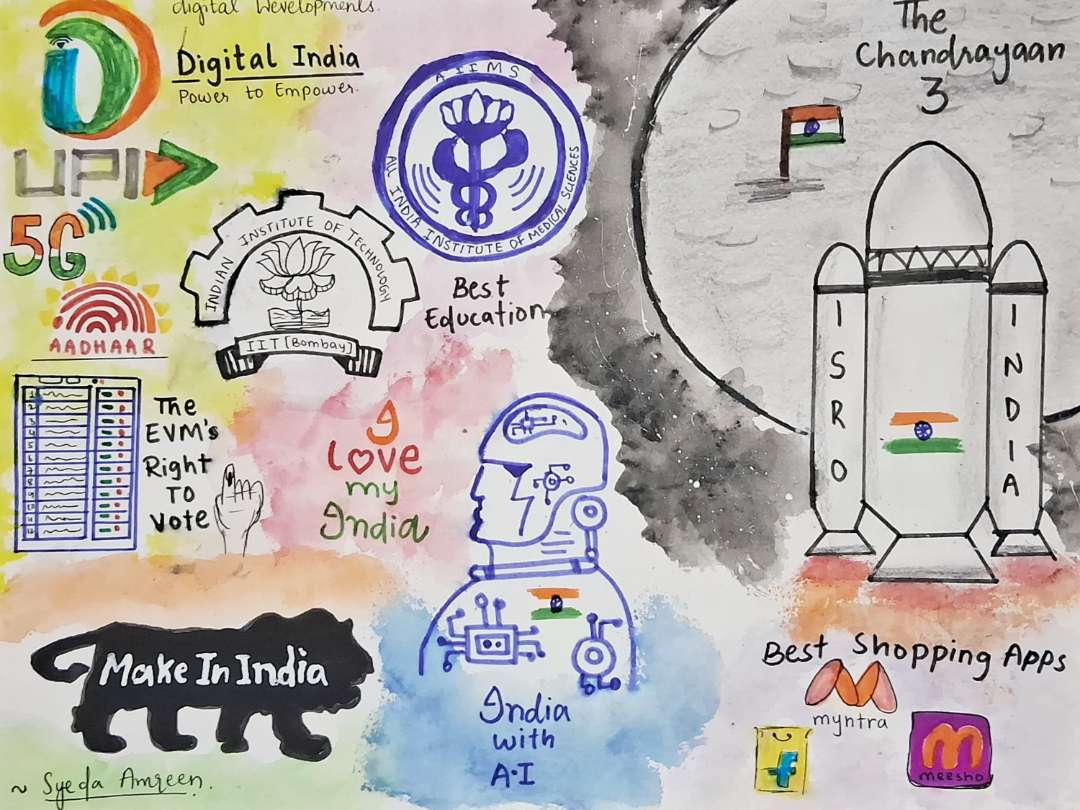 digital Developments.
Digital India
Power to Empower.
UPI
5G
AADHAAR
AIIMS
ALL INDIA INSTITUTE OF MEDICAL SCIENCES
INDIAN INSTITUTE OF TECHNOLOGY
IIT [Bombay]
Best
Education
The
EVM's
Right
TO
Vote
I
love
my
India
Make In India
~ Syeda Amreen.
India
with
A.I
The
Chandrayaan
3
ISRO
INDIA
Best Shopping Apps
myntra
f
meesho